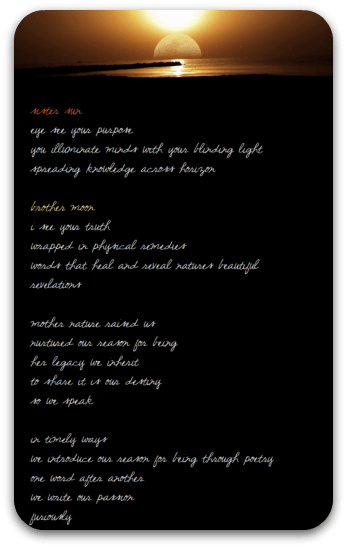 sister sun
eye see your purpose
you illuminate minds with your blinding light
spreading knowledge across horizon
brother moon
i see your truth
wrapped in physical remedies
words that heal and reveal natures beautiful
revelations
mother nature raised us
nurtured our reason for being
her legacy we inherit
to share it is our destiny
so we speak
in timely ways
we introduce our reason for being through poetry
one word after another
we write our passion
furiously